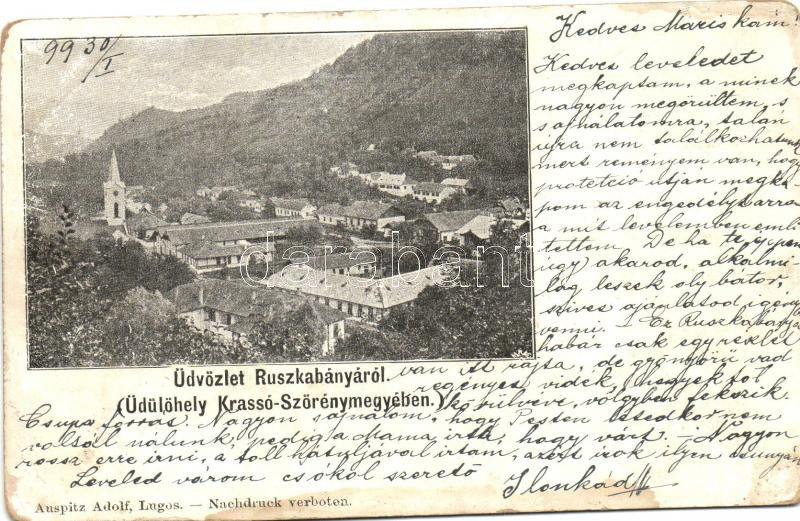 99 30/I
Kedves Mariskám!
Kedves leveledet
megkaptam, a minek
nagyon megörültem, s
sajnálatomra, talán
ujra nem találkozhatunk
mert reményem van, hogy
protetció utján megka-
pom az engedélyt arra
a mit levelemben emli-
tettem. De ha te éppen
úgy akarod, alkalmi-
lag leszek oly bátor,
szives ajánlatod igény
venni. — Ez Ruszkabánya
habár csak egy részlet
van itt rajta, de gyönyörü vad
regényes vidék, hegyektől
körülvéve, völgyben fekszik
darabanth
Üdvözlet Ruszkabányáról.
(Üdülőhely Krassó-Szörénymegyében.)
Csupa forrás. Nagyon sajnálom, hogy Pesten esedkor nem
voltál nálunk, pedig a Mama irta, hogy várt. — Nagyon
rossz erre irni, a toll hátuljával irtam, azért irok ilyen csunyán
Leveled várom csókol szerető Ilonkád
Auspitz Adolf, Lugos. — Nachdruck verboten.